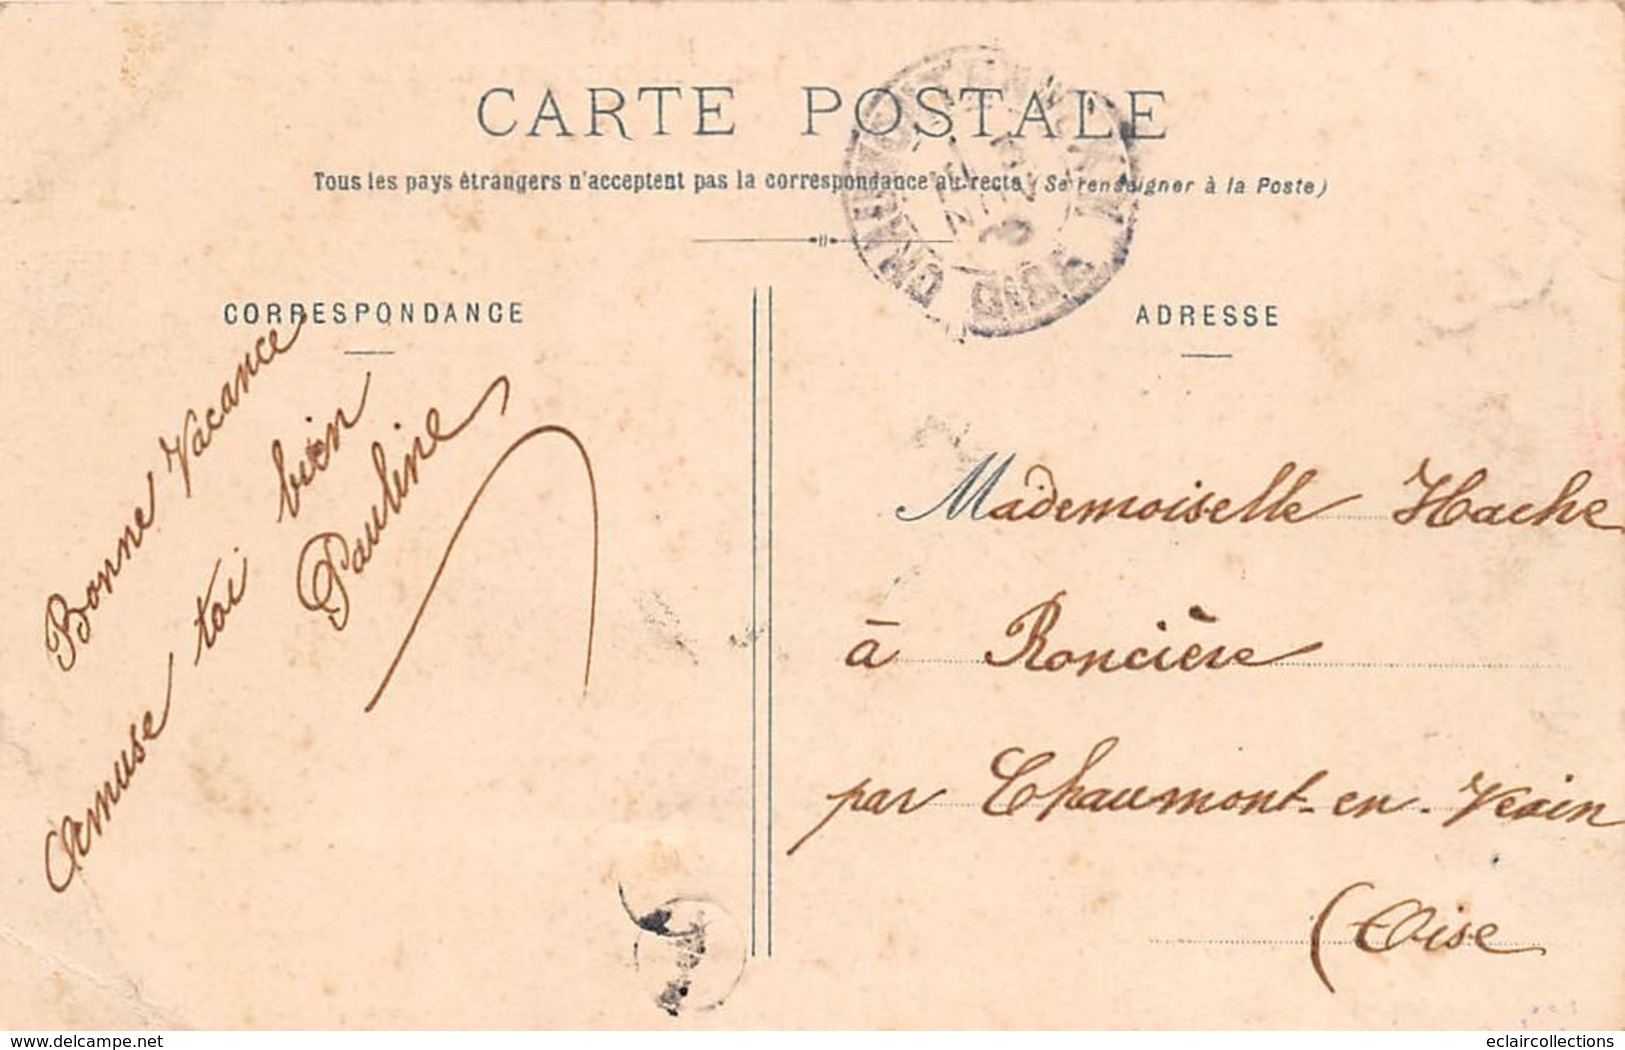 CARTE POSTALE
Tous les pays étrangers n'acceptent pas la correspondance au recto (Se renseigner à la Poste)
CORRESPONDANCE
Bonne Vacance
Amuse toi bien
Pauline
ADRESSE
Mademoiselle Hache
à Roncière
par Chaumont-en-Vexin
(Oise
OISE
eclaircollections